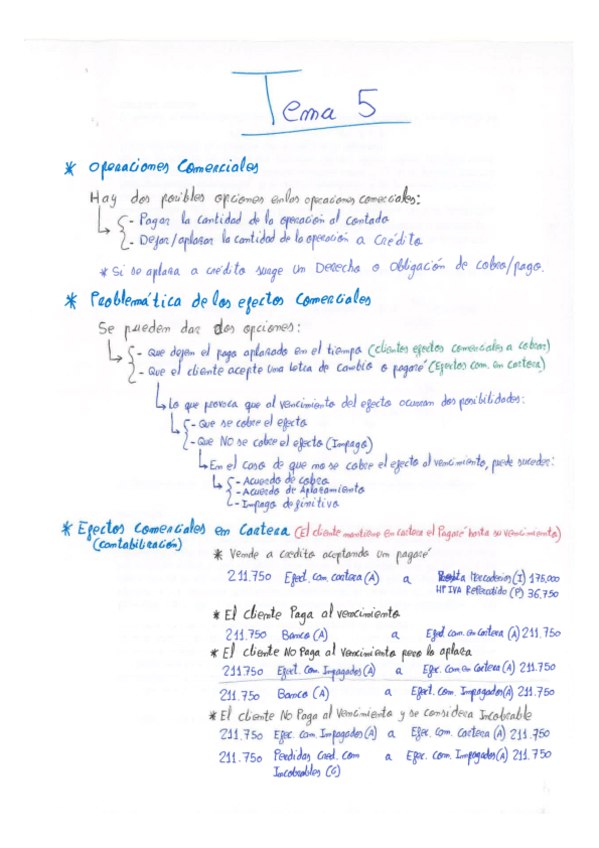 Tema 5
* Operaciones Comerciales
Hay dos posibles opciones en las operaciones comerciales:
- Pagar la cantidad de la operación al contado
- Dejar/aplazar la cantidad de la operación a crédito
* Si se aplaza a crédito surge un Derecho o Obligación de cobro/pago.
* Problemática de los efectos Comerciales
Se pueden dar dos opciones:
- Que dejen el pago aplazado en el tiempo (clientes efectos comerciales a cobrar)
- Que el cliente acepte una letra de cambio o pagaré (Efectos com. en cartera)
Lo que provoca que al vencimiento del efecto ocurran dos posibilidades:
- Que se cobre el efecto
- Que NO se cobre el efecto (Impago)
En el caso de que no se cobre el efecto al vencimiento, puede suceder:
- Acuerdo de cobro
- Acuerdo de Aplazamiento
- Impago definitivo
* Efectos Comerciales en Cartera (El cliente mantiene en cartera el Pagaré hasta su vencimiento)
(contabilización)
* Vende a credito aceptando un pagaré
211.750 Efect. com. cartera (A) a Mercaderías (I) 175.000
HP IVA Repercutido (P) 36.750
* El cliente Paga al vencimiento
211.750 Banco (A) a Efect. com. en Cartera (A) 211.750
* El cliente NO Paga al Vencimiento pero lo aplaza
211.750 Efect. Com. Impagados (A) a Efec. Com en Cartera (A) 211.750
211.750 Banco (A) a Efect. Com. Impagados (A) 211.750
* El cliente No Paga al Vencimiento y se considera Incobrable
211.750 Efec. Com. Impagados (A) a Efec. Com. Cartera (A) 211.750
211.750 Perdidas Cred. com a Efec. Com. Impagados (A) 211.750
Incobrables (G)